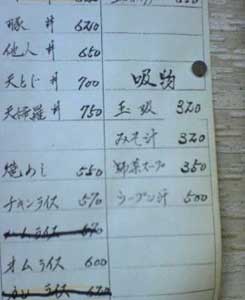 豚丼 620
他人丼 650
天とじ丼 700
天婦羅丼 750
焼めし 550
チキンライス 570
オムライス 600
吸物
玉吸 320
みそ汁 320
野菜スープ 350
ラーメン汁 500